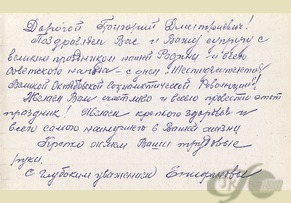 Дорогой Григорий Дмитриевич!
Поздравляем Вас и Вашу супругу с
великим праздником нашей Родины и всего
советского народа - с днём "Шестидесятилетия
Великой Октябрьской Социалистической Революции"!
Желаем Вам счастливо и весело провести этот
праздник! Желаем крепкого здоровья и
всего самого наилучшего в Вашей жизни
Крепко жмём Ваши трудовые
руки.
С глубоким уважением